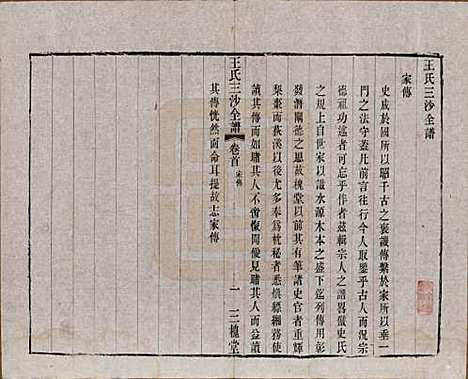 王氏三沙全譜
家傳
史成於國所以昭千古之褒譏傳繫於家所以垂一
門之法守蓋凡前言往行今人取鑒乎古人而況宗
德祖功述者可忘乎作者茲輯宗人之譜畧倣史氏
之規上自世家以識水源木本之盛下迄列傳用彰
發潛闡德之思故槐堂以前其有筆諸史官者重輝
梨棗而荻溪以後尤多奉為枕秘者悉慎縹緗務使
讀其傳者如睹其人不啻
聞優見睹其人而益讀
其傳恍然而命耳提故志家傳
王氏三沙全譜
卷首
家傳
一
三槐堂